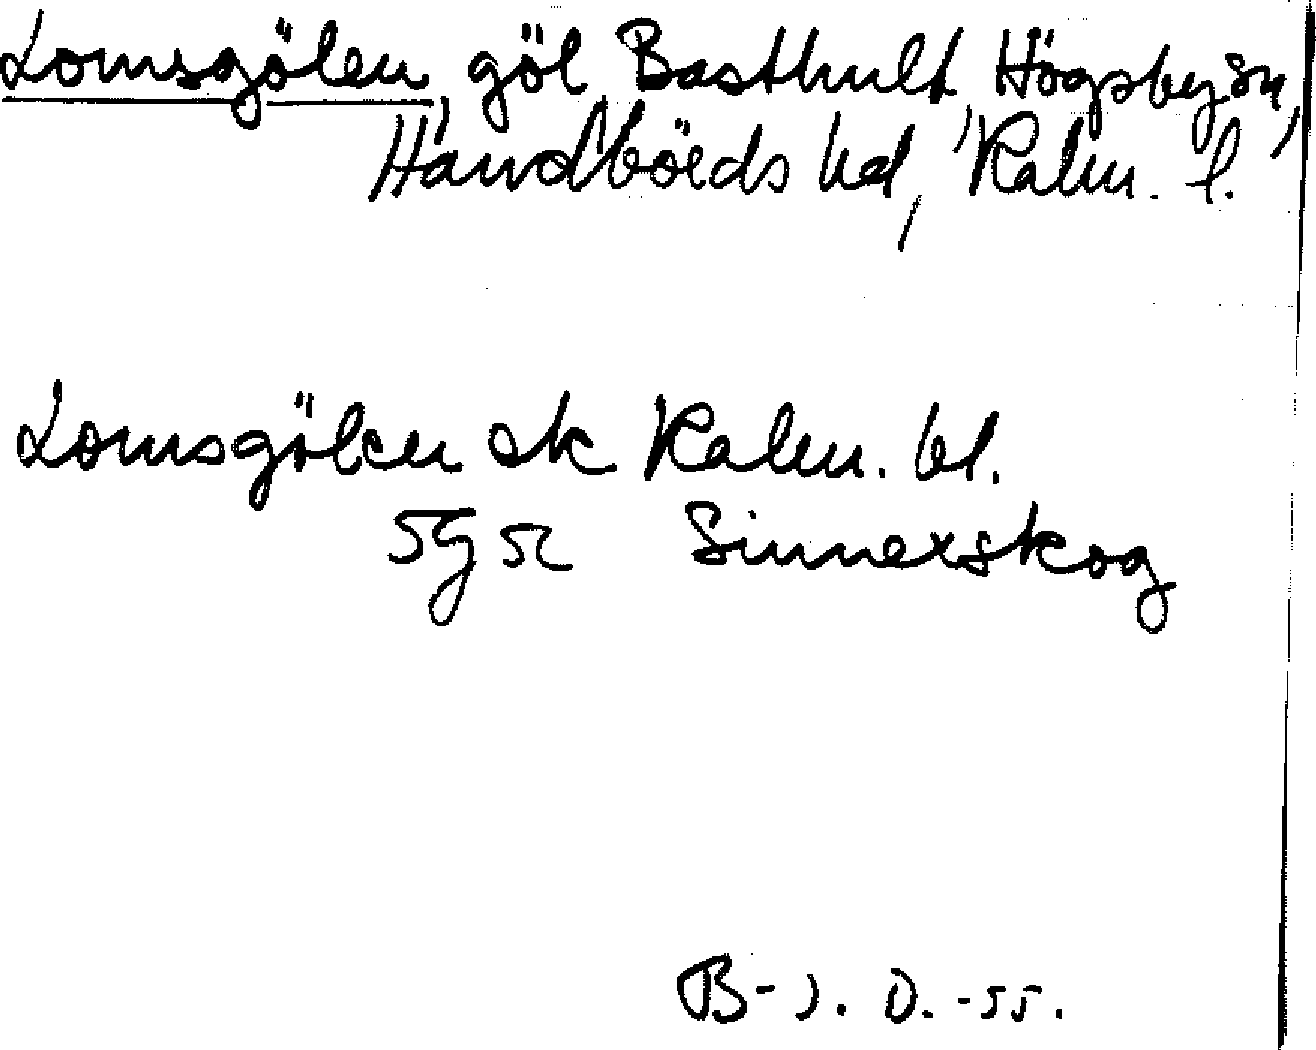 Lomsgölen, göl Basthult, Högsby sn,
Handbörds hd, Kalm. l.
Lomsgölen ek Kalm. bl.
5g 5c Sinnerskog
B-J. O. -55.